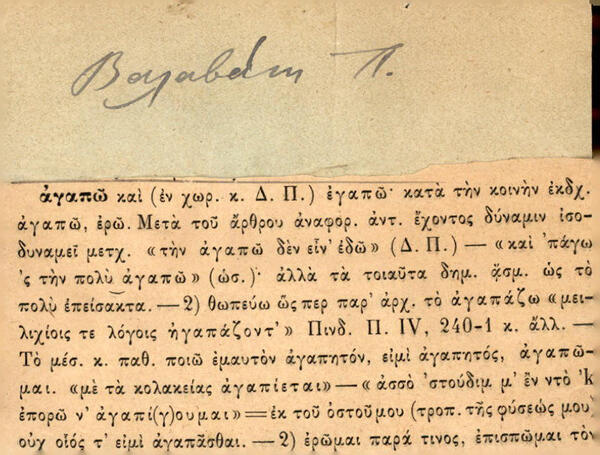 Βαλαβάνη Π.
ἀγαπῶ καὶ (ἐν χωρ. κ. Δ. Π.) ἐγαπῶ· κατὰ τὴν κοινὴν ἐκδχ.
ἀγαπῶ, ἐρῶ. Μετὰ τοῦ ἄρθρου ἀναφορ. ἀντ. ἔχοντος δύναμιν ἰσο-
δυναμεῖ μετχ. «τὴν ἀγαπῶ δὲν εἶν' ἐδῶ» (Δ. Π.) — «καὶ 'πάγω
'ς τὴν πολὺ ἀγαπῶ» (ὡσ.)· ἀλλὰ τὰ τοιαῦτα δημ. ᾄσμ. ὡς τὸ
πολὺ ἐπείσακτα. — 2) θωπεύω ὥς περ παρ' ἀρχ. τὸ ἀγαπάζω «μει-
λιχίοις τε λόγοις ἠγαπάζοντ'» Πινδ. Π. IV, 240-1 κ. ἄλλ. —
Τὸ μέσ. κ. παθ. ποιῶ ἐμαυτὸν ἀγαπητόν, εἰμὶ ἀγαπητός, ἀγαπῶ-
μαι. «μὲ τὰ κολακείας ἀγαπίεται» — «ἀσσὸ 'στούδιμ μ' ἐν ντὸ 'κ
ἐπορῶ ν' ἀγαπί(γ)ουμαι» = ἐκ τοῦ ὀστοῦμου (τροπ. τῆς φύσεώς μου)
οὐχ οἷός τ' εἰμὶ ἀγαπᾶσθαι. — 2) ἐρῶμαι παρά τινος, ἐπισπῶμαι τὸν